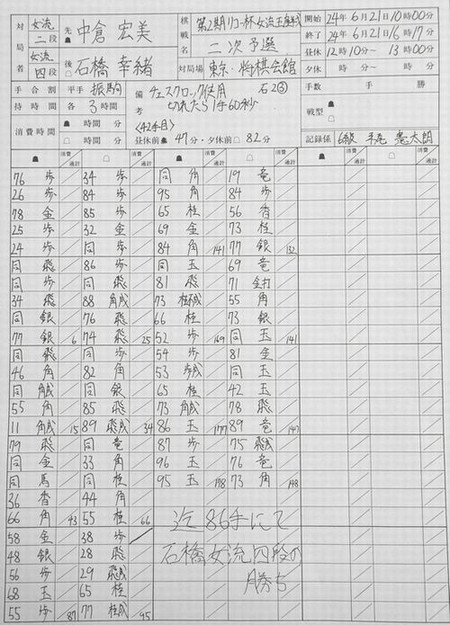 対局者
女流二段
先
中倉 宏美
女流四段
後
石橋 幸緒
棋戦名
第2期リコー杯女流王座戦
二次予選
対局場 東京・将棋会館
開始 24年6月21日10時00分
終了 24年6月21日16時17分
昼休 12時10分～13時00分
夕休 時 分～ 時 分
手合割 平手 振駒
持時間 各3時間
備考
チェスクロック使用 石2
切れたら1手60秒
消費時間
時間 分
時間 分
<42手目>
昼休前 47分・夕休前 82分
手数 手 勝
戦型
記録係 6級
76 歩 34 歩 同 角 19 竜
26 歩 84 歩 95 角 84 歩
78 金 85 歩 65 桂 56 香
25 歩 32 金 69 金 73 桂
24 歩 同 歩 84 角 141 77 銀 132
同 飛 86 歩 同 玉 69 竜
同 歩 同 飛 81 飛 71 金打
34 飛 88 角成 73 桂成 55 角
同 銀 76 飛 66 桂 73 銀
77 銀 6 74 飛 25 52 歩 169 同 玉 141
同 飛 同 歩 54 歩 81 金
46 角 82 角 53 歩成 同 玉
同 角成 同 銀 65 桂 42 玉
55 角 85 飛 73 角成 78 飛
11 角成 15 89 飛成 34 86 玉 177 89 竜 147
79 飛 同 竜 87 歩 75 飛成
同 金 33 角 96 玉 76 竜
同 馬 同 桂 95 玉 178 73 角 148
36 香 44 角
66 角 43 55 桂 66
58 金 38 歩
48 銀 28 飛
56 歩 29 飛成
68 玉 65 桂
55 歩 87 77 桂成 95
迄86手にて
石橋女流四段の
勝ち